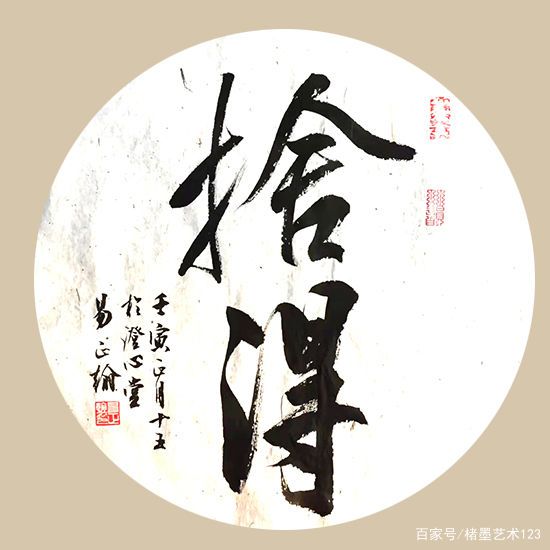 捨得
壬寅正月十五
於澄心堂
易正翰
百家号/楮墨艺术123